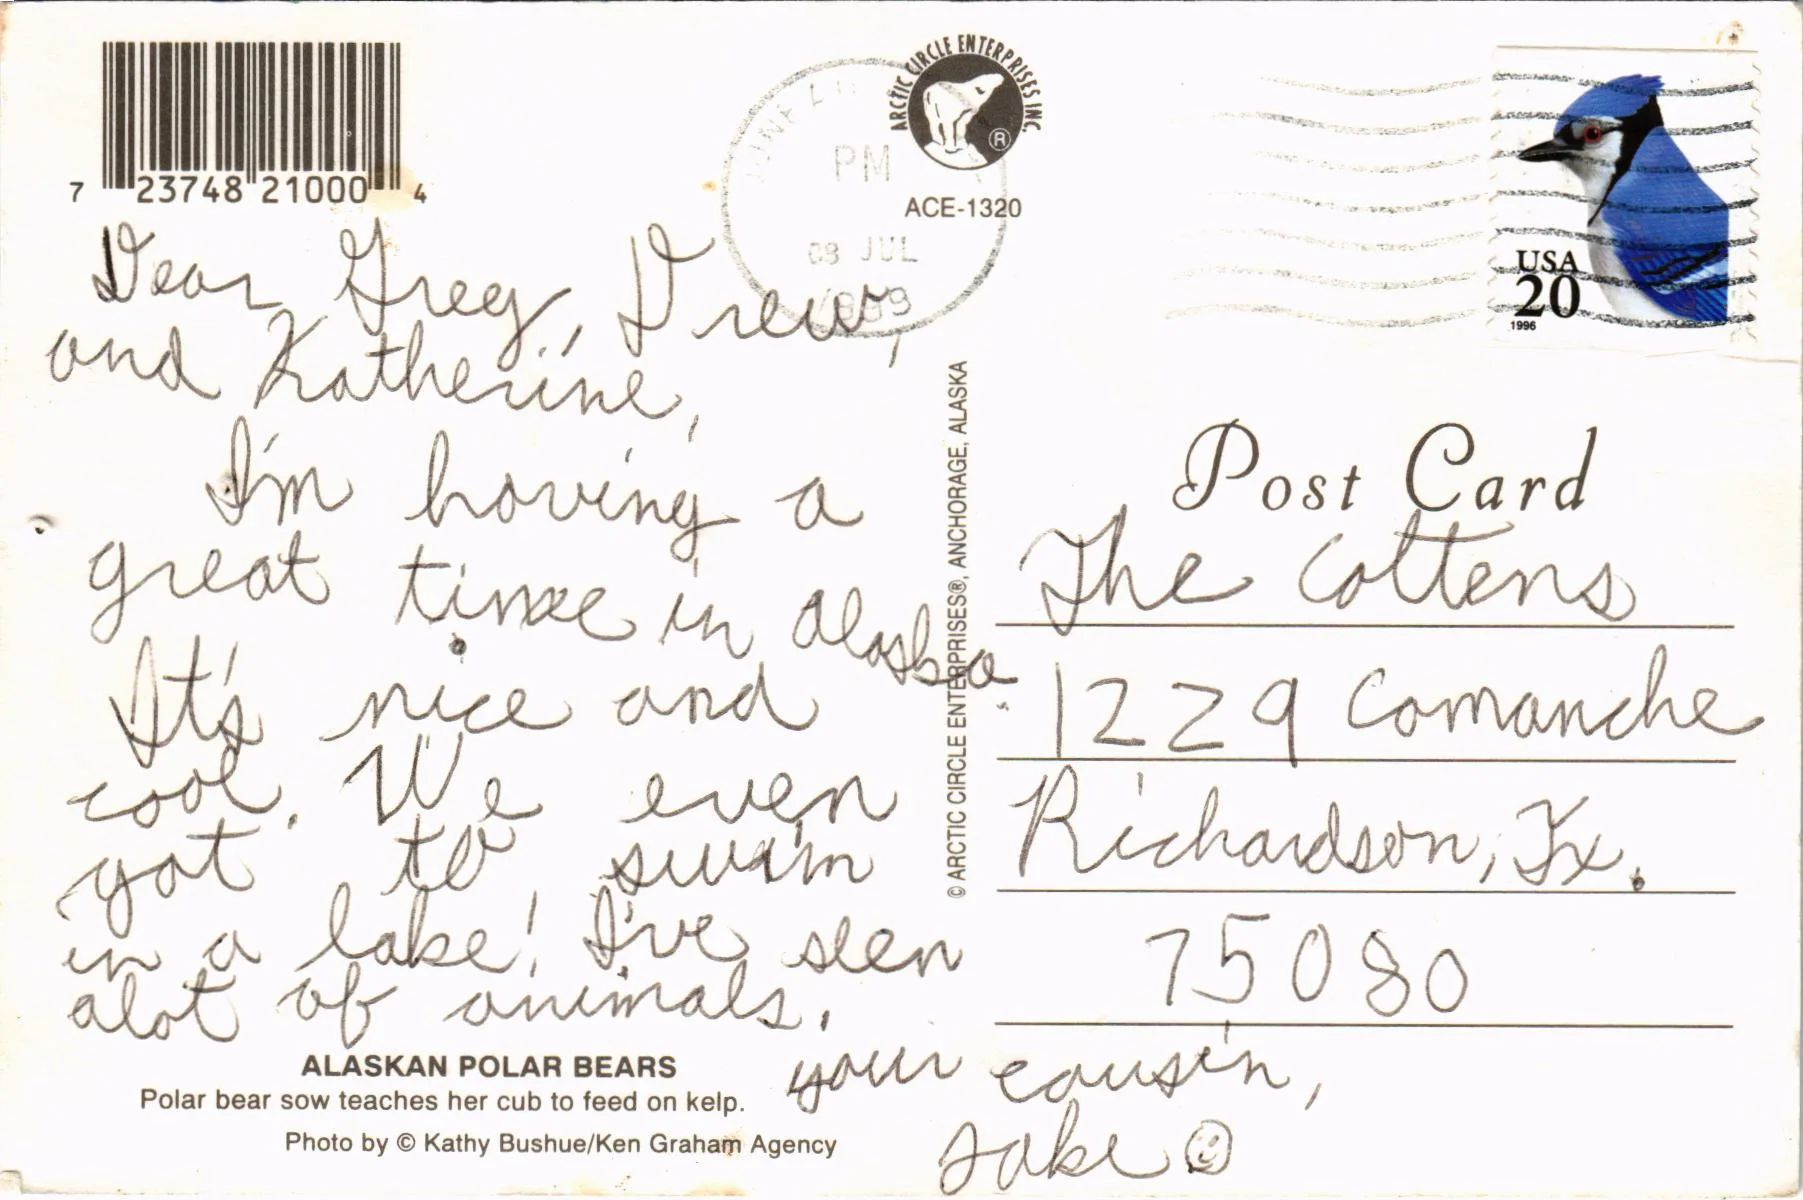 7 23748 21000 4
ARCTIC CIRCLE ENTERPRISES INC.
®
ACE-1320
PM
08 JUL
USA
20
1996
Dear Greg, Drew,
and Katherine,
I'm having a
great time in Alaska.
It's nice and
cool. We even
got to swim
in a lake! I've seen
alot of animals.
your cousin,
Jake
ALASKAN POLAR BEARS
Polar bear sow teaches her cub to feed on kelp.
Photo by © Kathy Bushue/Ken Graham Agency
© ARCTIC CIRCLE ENTERPRISES®, ANCHORAGE, ALASKA
Post Card
The Coltens
1229 Comanche
Richardson, Tx.
75080